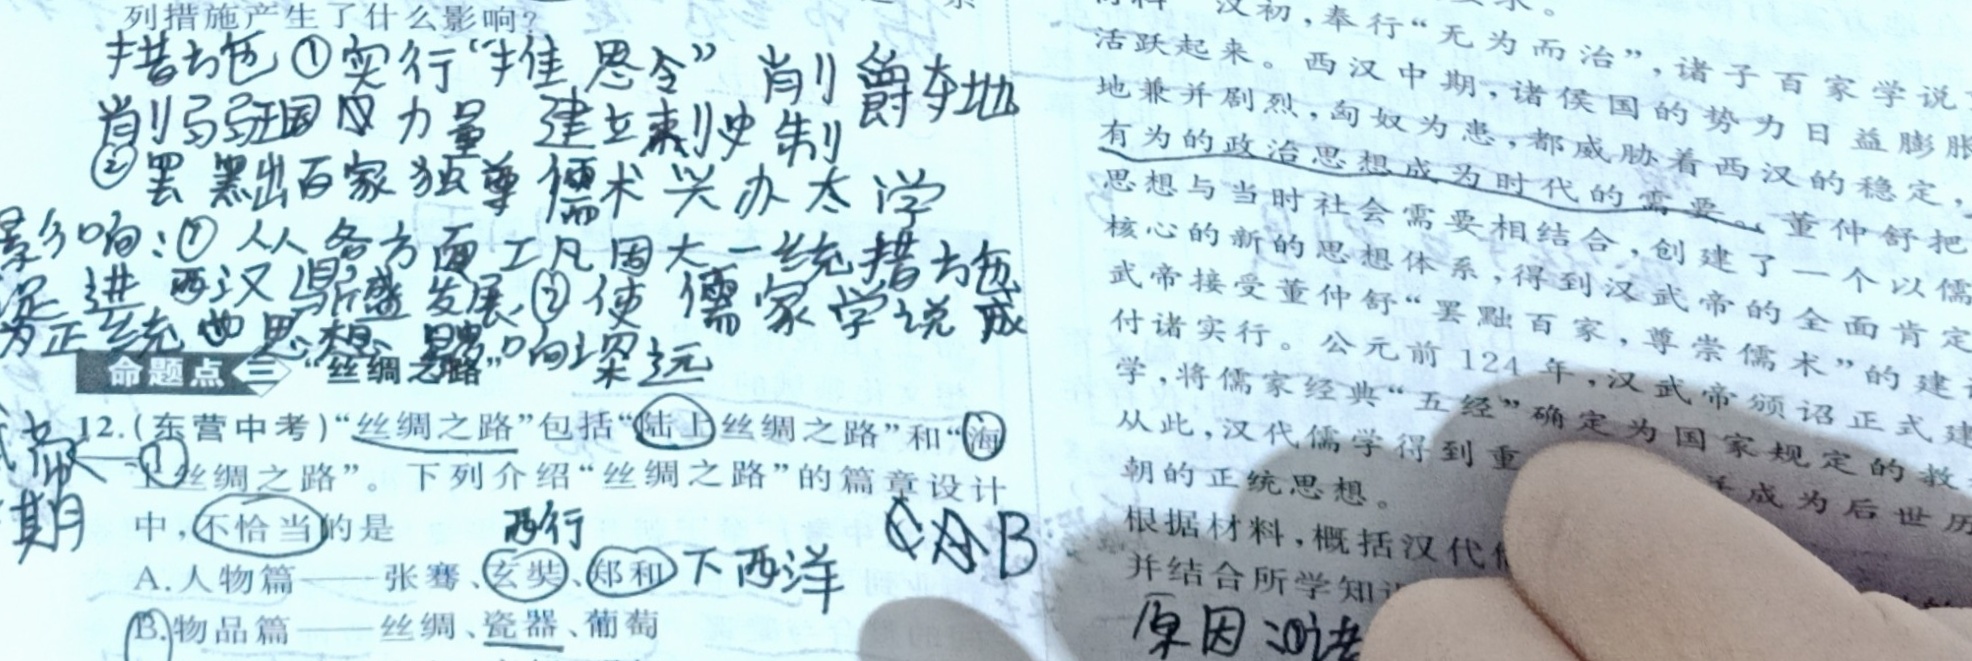 列措施产生了什么影响?
措施①实行“推恩令” 削爵夺地
削弱王国力量 建立刺史制
②罢黜百家独尊儒术兴办太学
影响:①从各方面巩固大一统措施
促进西汉鼎盛发展②使儒家学说成
为正统思想 影响深远
命题点三 “丝绸之路”
12.(东营中考)“丝绸之路”包括“陆上丝绸之路”和“海
上丝绸之路”。下列介绍“丝绸之路”的篇章设计
中,不恰当的是
期
西行
B
A.人物篇——张骞、玄奘、郑和 下西洋
B.物品篇——丝绸、瓷器、葡萄
汉初,奉行“无为而治”,诸子百家学说
活跃起来。西汉中期,诸侯国的势力日益膨胀
地兼并剧烈,匈奴为患,都威胁着西汉的稳定,
有为的政治思想成为时代的需要。董仲舒把
思想与当时社会需要相结合,创建了一个以儒
核心的新的思想体系,得到汉武帝的全面肯定
武帝接受董仲舒“罢黜百家,尊崇儒术”的建
付诸实行。公元前124年,汉武帝颁诏正式建
学,将儒家经典“五经”确定为国家规定的教
从此,汉代儒学得到重 成为后世历
朝的正统思想。
根据材料,概括汉代
并结合所学知
原因:①诸